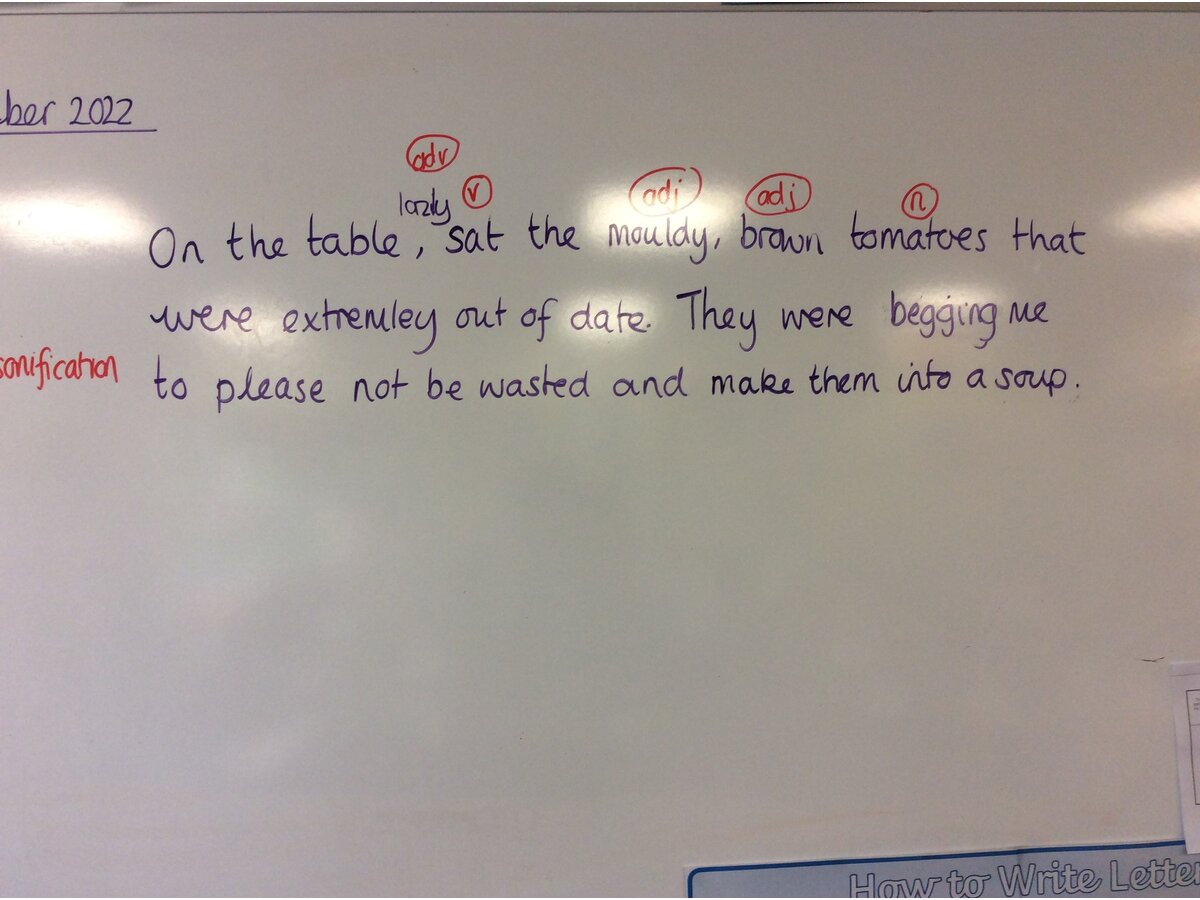 ber 2022
adv
lazily v adj adj n
On the table, sat the mouldy, brown tomatoes that
were extremley out of date. They were begging me
sonification to please not be wasted and make them into a soup.
How to Write Letter